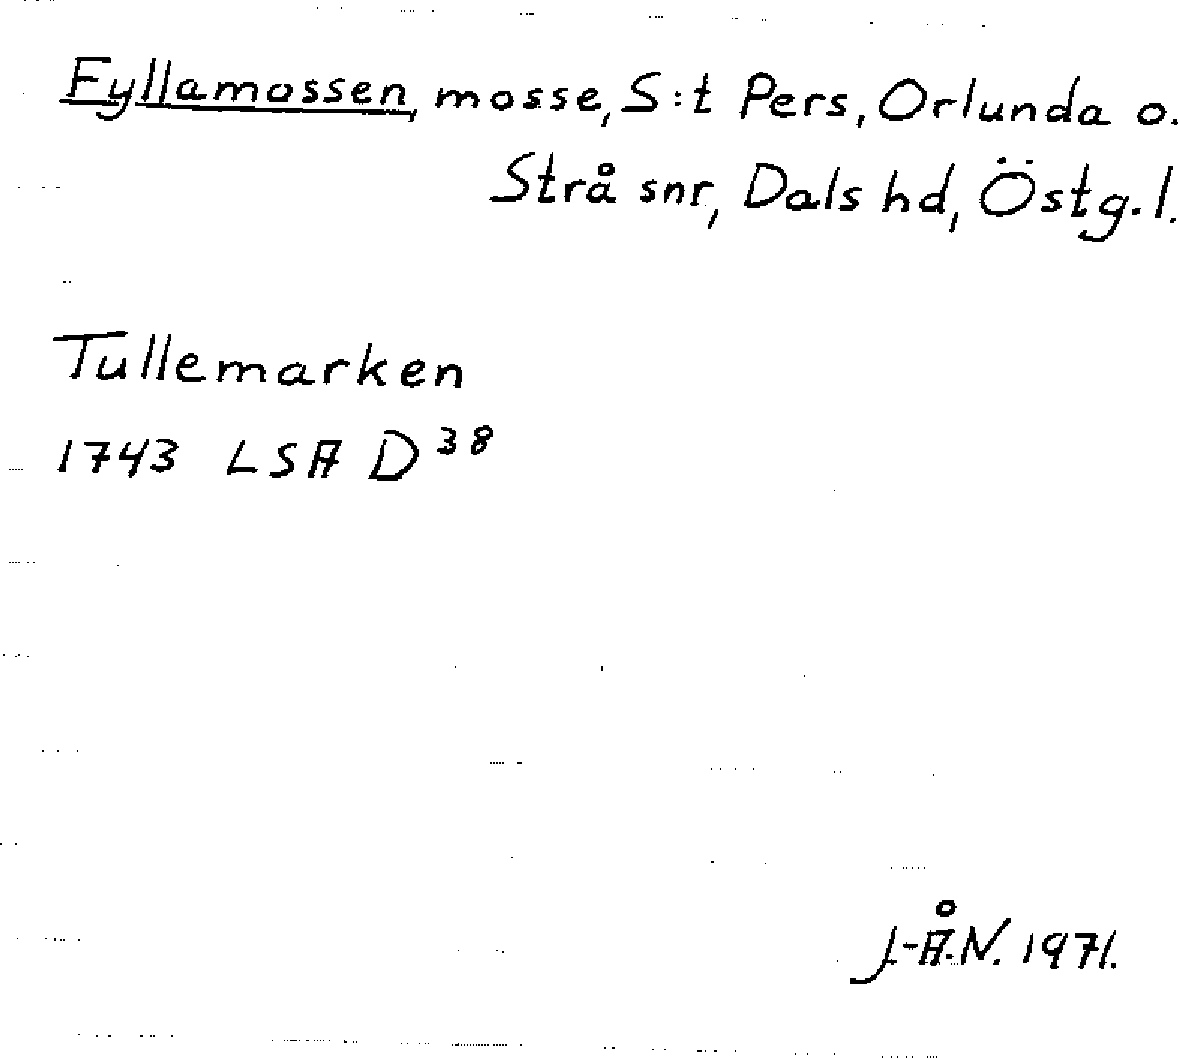 Fyllamossen, mosse, S:t Pers, Orlunda o.
Strå snr, Dals hd, Östg.l.
Tullemarken
1743 LSA D 38
J.-Å.N. 1971.